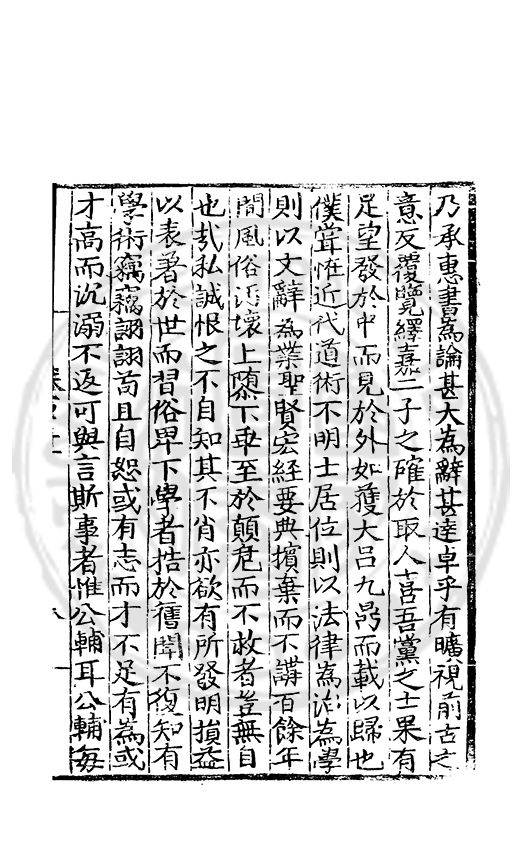 乃承惠書為論甚大為辭甚達卓乎有曠視前古之
意反覆覽繹嘉二子之確於取人喜吾黨之士果有
足望發於中而見於外如獲大呂九鼎而載以歸也
僕嘗怪近代道術不明士居位則以法律為治為學
則以文辭為業聖賢宏經要典擯棄而不講百餘年
間風俗汚壞上隳下乖至於顛危而不救者豈無自
也哉私誠恨之不自知其不肖亦欲有所發明損益
以表著於世而習俗卑下學者梏於舊聞不復知有
學術竊竊詡詡苟且自恕或有志而才不足有為或
才高而沉溺不返可與言斯事者惟公輔耳公輔每